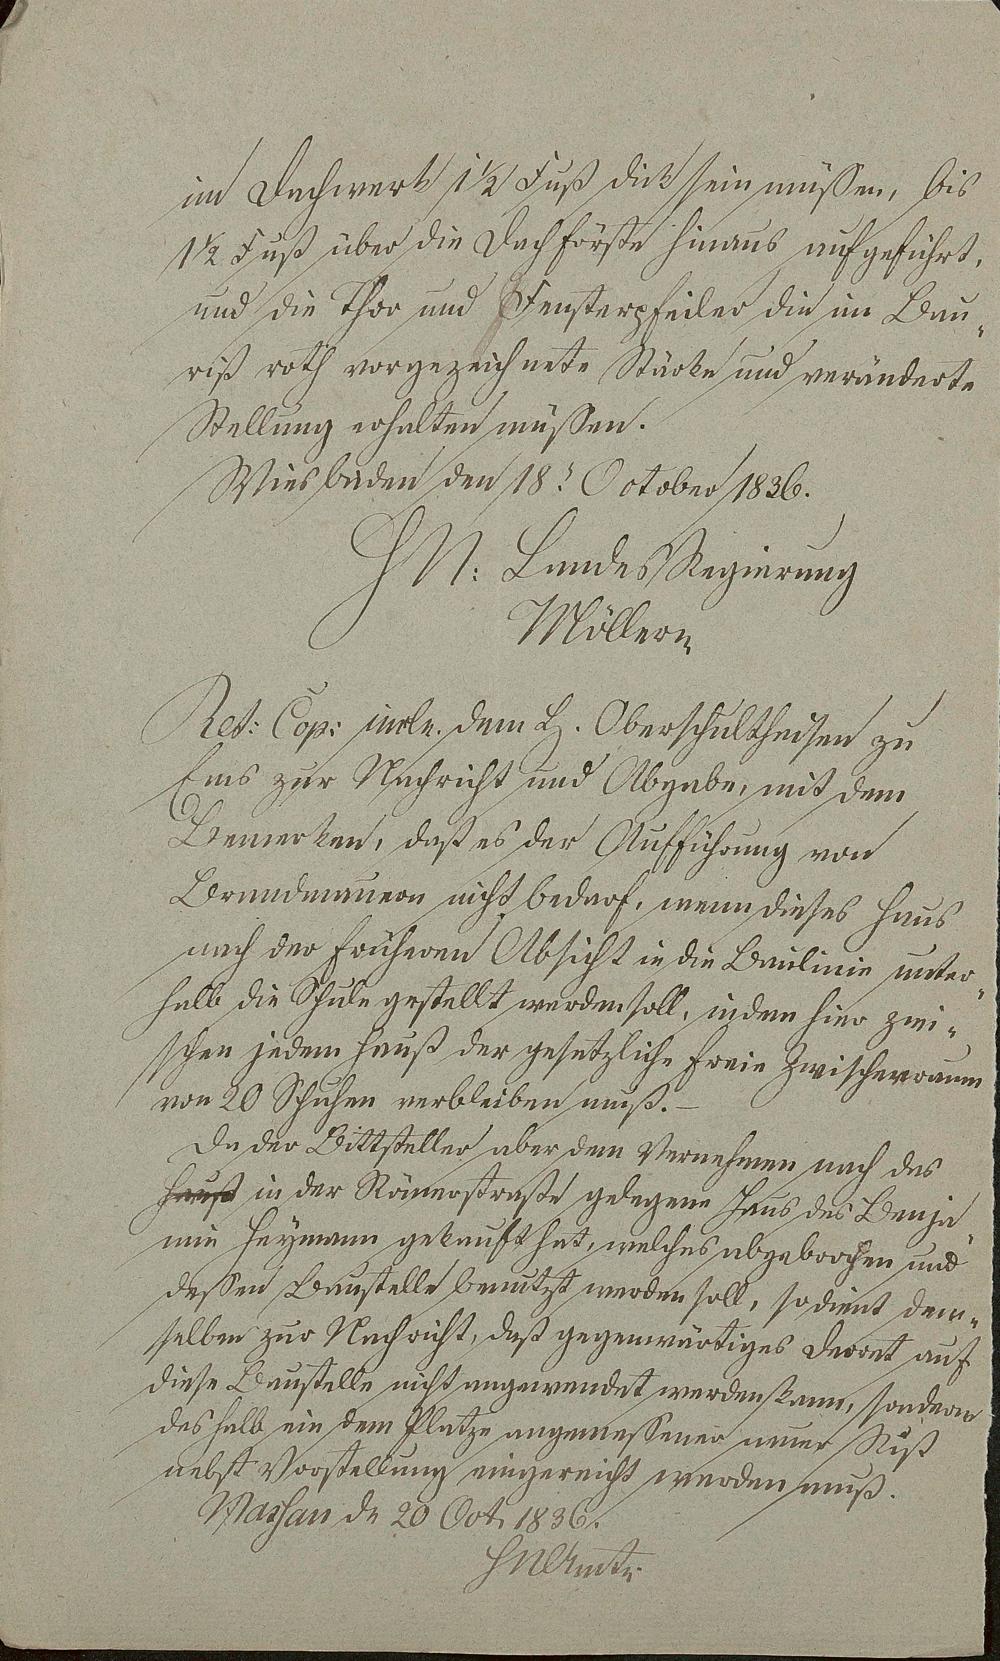 im Dachwerk 1½ Fuß dick sein müssen, bis
1½ Fuß über die Dachförste hinaus aufgeführt,
und die Thor und Fensterpfeiler die im Bau„
riß roth vorgezeichnete Stärke und veränderte
Stellung erhalten müssen.
Wiesbaden den 18: October 1836.
H N: Landes Regierung
Möllern
Ret: Cop: incls. dem H. Oberschultheisen zu
Ems zur Nachricht und Abgabe, mit dem
Bemerken, daß es der Aufführung von
Brandmauern nicht bedarf, wenn dieses Haus
nach der früheren Absicht in die Baulinie unter„
halb die Schule gestellt werden soll, indem hier zwi„
schen jedem Hauß der gesetzliche freie Zwischenraum
von 20 Schuhen verbleiben muß. –
Da der Bittsteller aber dem Vernehmen nach das
Hauß in der Römerstraße gelegene Haus des Benja„
min Heymann gekauft hat, welches abgebrochen und
deßen Baustelle benutzt werden soll, so dient dem„
selben zur Nachricht, daß gegenwärtiges Decret auf
diese Baustelle nicht angewendet werden kann, sondern
deshalb ein dem Platze angemessener neuer Riß
nebst Vorstellung eingereicht werden muß.
Nassau de 20 Oct. 1836.
HN Amt